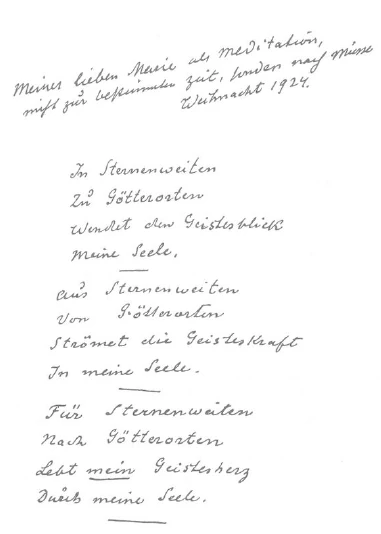 Meiner lieben Marie als Meditation,
nicht zur bestimmten Zeit, sondern nach Musse
Weihnacht 1924.
In Sternenweiten
Zu Götterorten
Wendet den Geistesblick
Meine Seele.
Aus Sternenweiten
Von Götterorten
Strömet die Geisteskraft
In meine Seele.
Für Sternenweiten
Nach Götterorten
Lebt mein Geistesherz
Durch meine Seele.